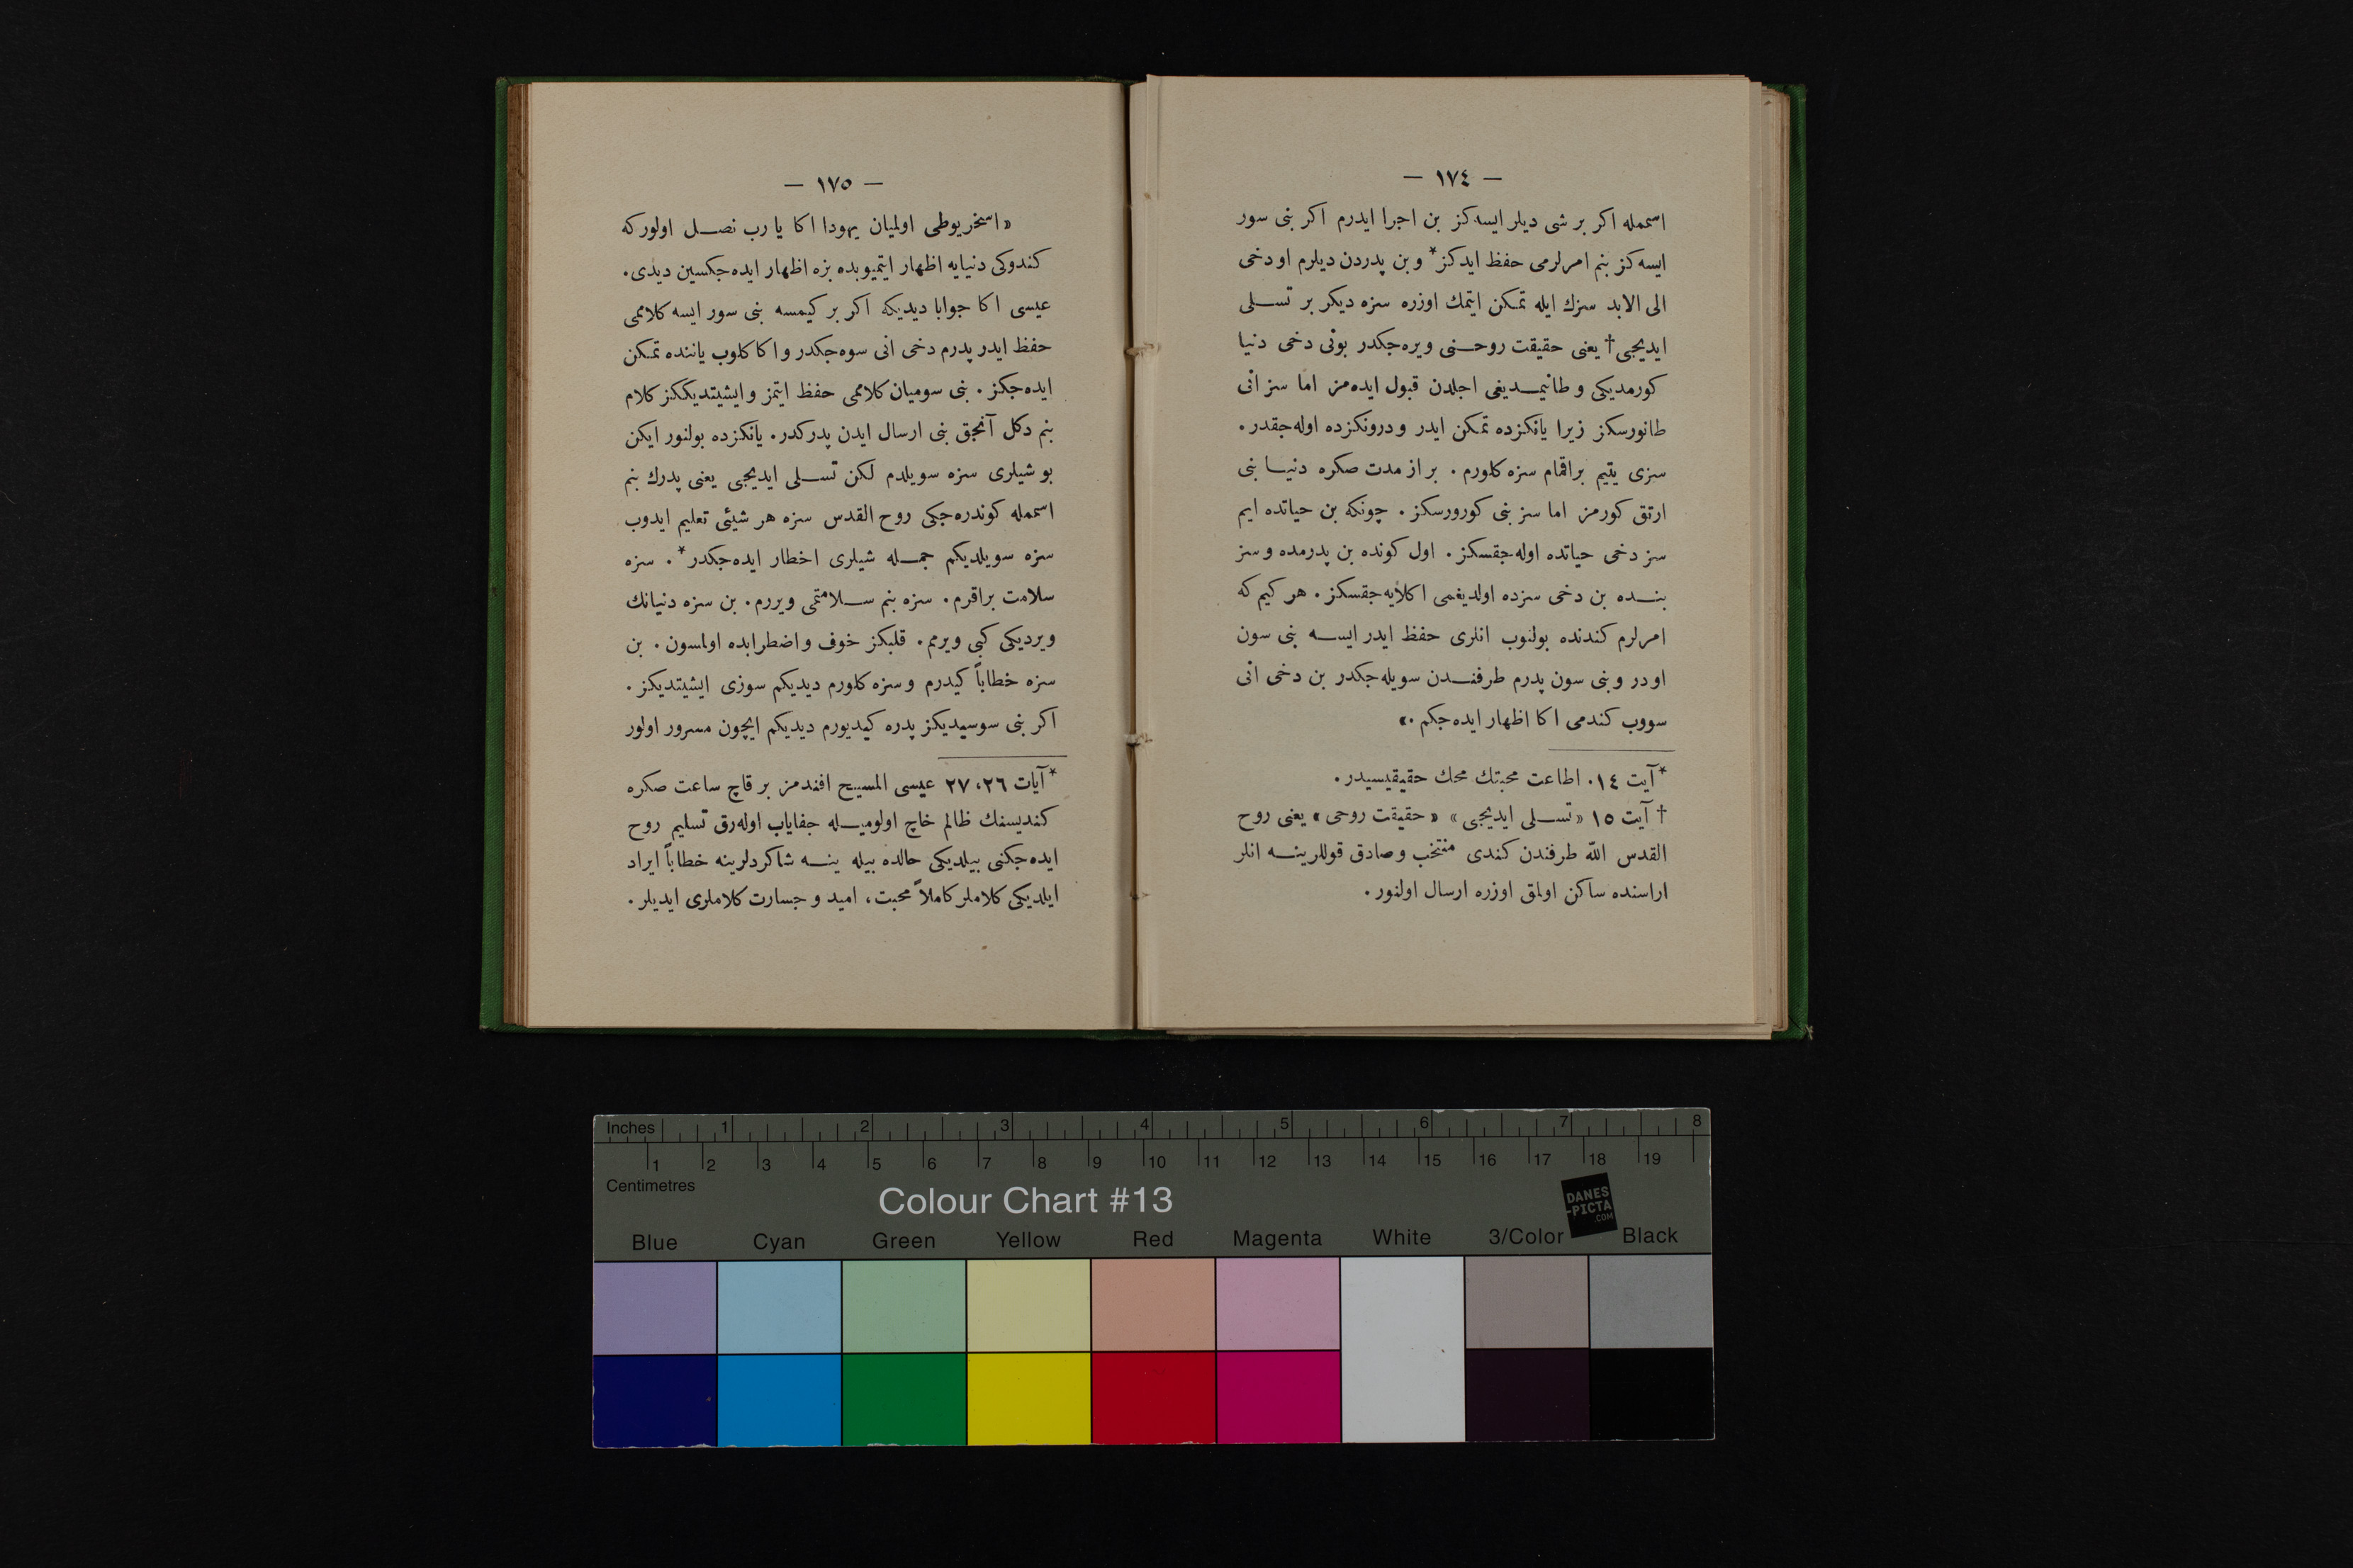 — ١٧٤ —
اسممله اكر بر شى ديلر ايسه‌كز بن اجرا ايدرم اكر بنى سور
ايسه‌كز بنم امرلرمى حفظ ايدكز* وبن پدردن ديلرم او دخى
الى الابد سزك ايله تمكن ايتمك اوزره سزه ديكر بر تسلى
ايديجى† يعنى حقيقت روحنى ويره‌جكدر بونى دخى دنيا
كورمديكى وطانيمديغى اجلدن قبول ايده‌مز اما سز انى
طانورسكز زيرا يانكزده تمكن ايدر ودرونكزده اوله‌جقدر.
سزى يتيم براقمام سزه كلورم. بر از مدت صكره دنيا بنى
ارتق كورمز اما سز بنى كورورسكز. چونكه بن حياتده ايم
سز دخى حياتده اوله‌جقسكز. اول كونده بن پدرمده وسز
بنده بن دخى سزده اولديغمى اكلايه‌جقسكز. هر كيم كه
امرلرم كندنده بولنوب انلرى حفظ ايدر ايسه بنى سون
اودر وبنى سون پدرم طرفندن سويله‌جكدر بن دخى انى
سووب كندمى اكا اظهار ايده‌جكم.»
* آيت ١٤. اطاعت محبتك محك حقيقيسيدر.
† آيت ١٥ «تسلى ايديجى» «حقيقت روحى» يعنى روح
القدس اللّه طرفندن كندى منتخب وصادق قوللرينه انلر
اراسنده ساكن اولمق اوزره ارسال اولنور.
— ١٧٥ —
«اسخريوطى اولميان يهودا اكا يا رب نصل اولوركه
كندوكى دنيايه اظهار ايتميوبده بزه اظهار ايده‌جكسين ديدى.
عيسى اكا جوابا ديديكه اكر بر كيمسه بنى سور ايسه كلاممى
حفظ ايدر پدرم دخى انى سوه‌جكدر واكا كلوب ياننده تمكن
ايده‌جكز. بنى سوميان كلاممى حفظ ايتمز وايشيتديككز كلام
بنم دكل آنجق بنى ارسال ايدن پدركدر. يانكزده بولنور ايكن
بو شيلرى سزه سويلدم لكن تسلى ايديجى يعنى پدرك بنم
اسممله كوندره‌جكى روح القدس سزه هر شيئى تعليم ايدوب
سزه سويلديكم جمله شيلرى اخطار ايده‌جكدر*. سزه
سلامت براقرم. سزه بنم سلامتمى ويررم. بن سزه دنيانك
ويرديكى كبى ويرمم. قلبكز خوف واضطرابده اولمسون. بن
سزه خطاباً كيدرم وسزه كلورم ديديكم سوزى ايشيتديكز.
اكر بنى سوسيديكز پدره كيديورم ديديكم ايچون مسرور اولور
* آيات ٢٦، ٢٧ عيسى المسيح افندمز بر قاچ ساعت صكره
كنديسنك ظالم خاچ اولوميله جفاياب اوله‌رق تسليم روح
ايده‌جكنى بيلديكى حالده بيله ينه شاكردلرينه خطاباً ايراد
ايلديكى كلاملر كاملاً محبت، اميد و جسارت كلاملرى ايديلر.
Inches 1 2 3 4 5 6 7 8
1 2 3 4 5 6 7 8 9 10 11 12 13 14 15 16 17 18 19
Centimetres
Colour Chart #13
DANES
-PICTA
.COM
Blue Cyan Green Yellow Red Magenta White 3/Color Black